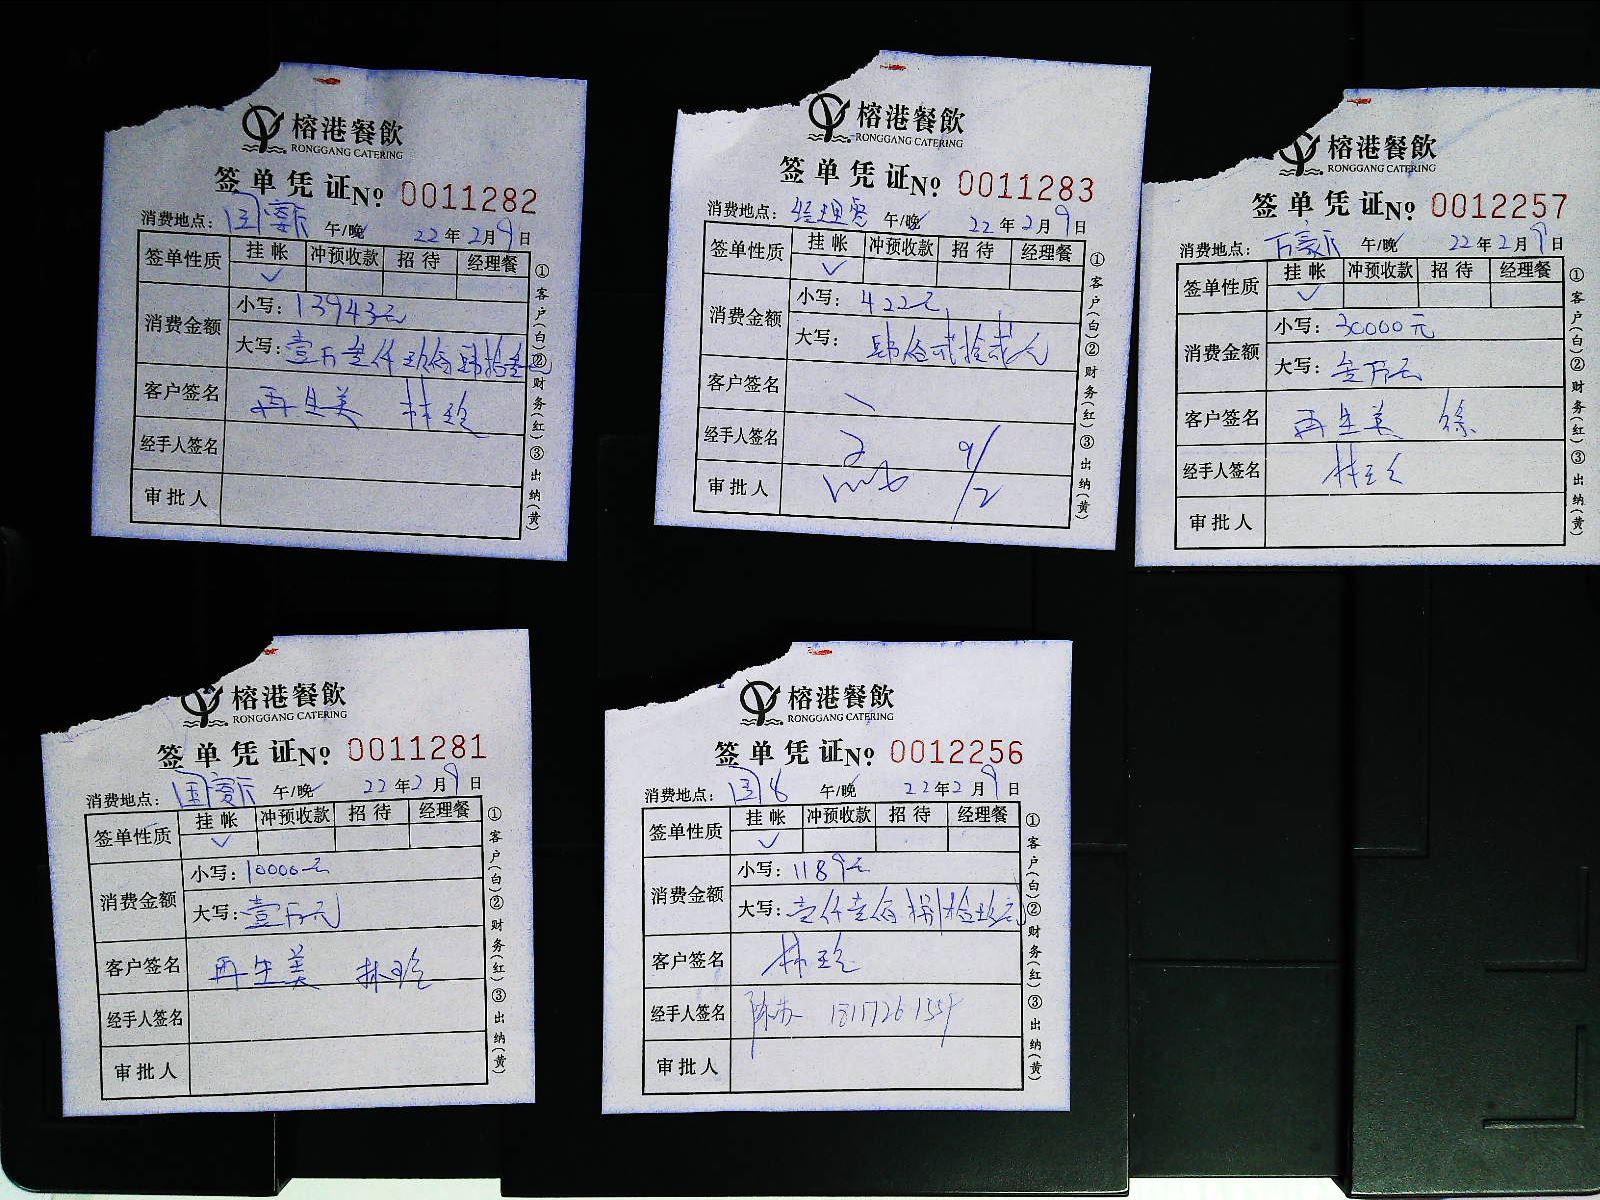 榕港餐飲
RONGGANG CATERING
签单凭证№ 0011282
消费地点：国宴厅 午/晚✓ 22年2月9日
签单性质 挂帐 冲预收款 招待 经理餐
✓
消费金额 小写：13943元
大写：壹万叁仟玖佰肆拾叁元
客户签名 再生美 林玲
经手人签名
审批人
①客户(白)②财务(红)③出纳(黄)
榕港餐飲
RONGGANG CATERING
签单凭证№ 0011283
消费地点：经理餐 午/晚✓ 22年2月9日
签单性质 挂帐 冲预收款 招待 经理餐
✓
消费金额 小写：422元
大写：肆佰贰拾贰元
客户签名
经手人签名 9/2
审批人
①客户(白)②财务(红)③出纳(黄)
榕港餐飲
RONGGANG CATERING
签单凭证№ 0012257
消费地点：万豪厅 午/晚✓ 22年2月9日
签单性质 挂帐 冲预收款 招待 经理餐
✓
消费金额 小写：30000元
大写：叁万元
客户签名 再生美 徐
经手人签名 林玲
审批人
①客户(白)②财务(红)③出纳(黄)
榕港餐飲
RONGGANG CATERING
签单凭证№ 0011281
消费地点：国宴厅 午/晚✓ 22年2月9日
签单性质 挂帐 冲预收款 招待 经理餐
✓
消费金额 小写：10000元
大写：壹万元
客户签名 再生美 林玲
经手人签名
审批人
①客户(白)②财务(红)③出纳(黄)
榕港餐飲
RONGGANG CATERING
签单凭证№ 0012256
消费地点：国 午/晚✓ 22年2月9日
签单性质 挂帐 冲预收款 招待 经理餐
✓
消费金额 小写：1189元
大写：壹仟壹佰捌拾玖元
客户签名 林玲
经手人签名
审批人
①客户(白)②财务(红)③出纳(黄)